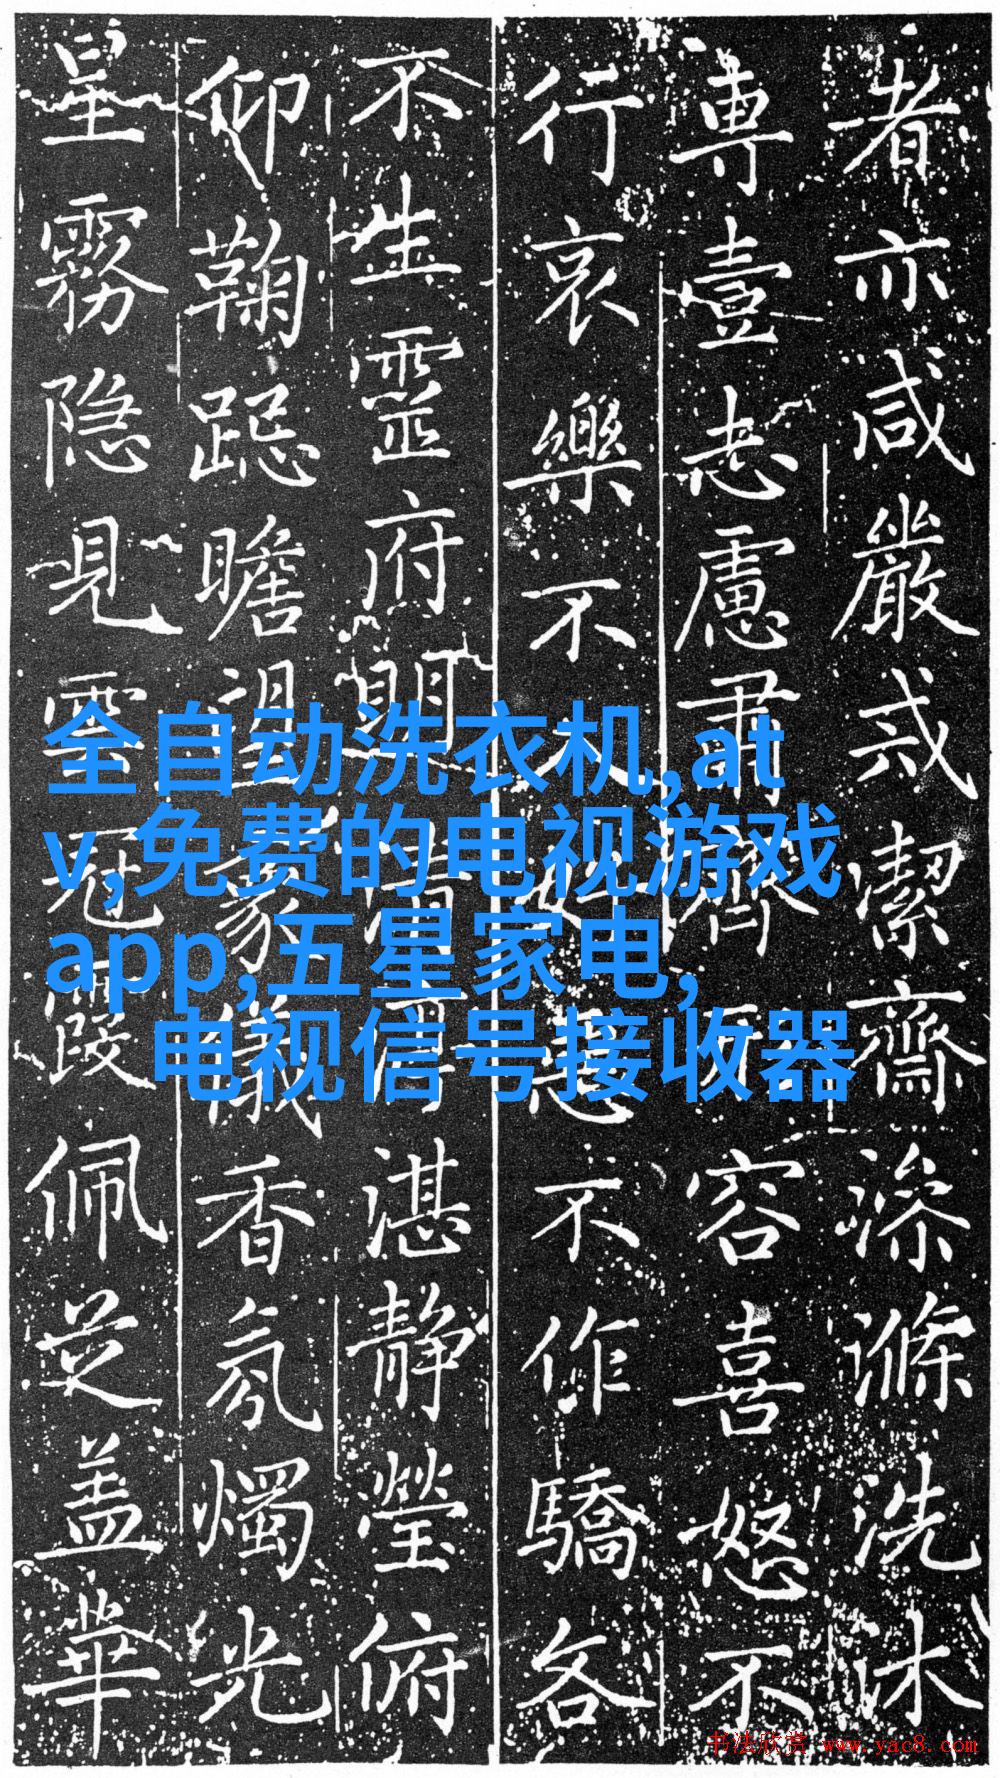 者亦咸嚴戒潔齋澡滌洗沐
專壹志慮肅齊容喜怒不
行哀樂不入不作驕各
不生靈府閒情湛靜瑩俯
仰鞠跽瞻望象儀香氛燭光
星霧隐見雲冠霞佩芝盖華
全自动洗衣机,at
v,免费的电视游戏
app,五星家电,
电视信号接收器
书法欣赏 www.yac8.com